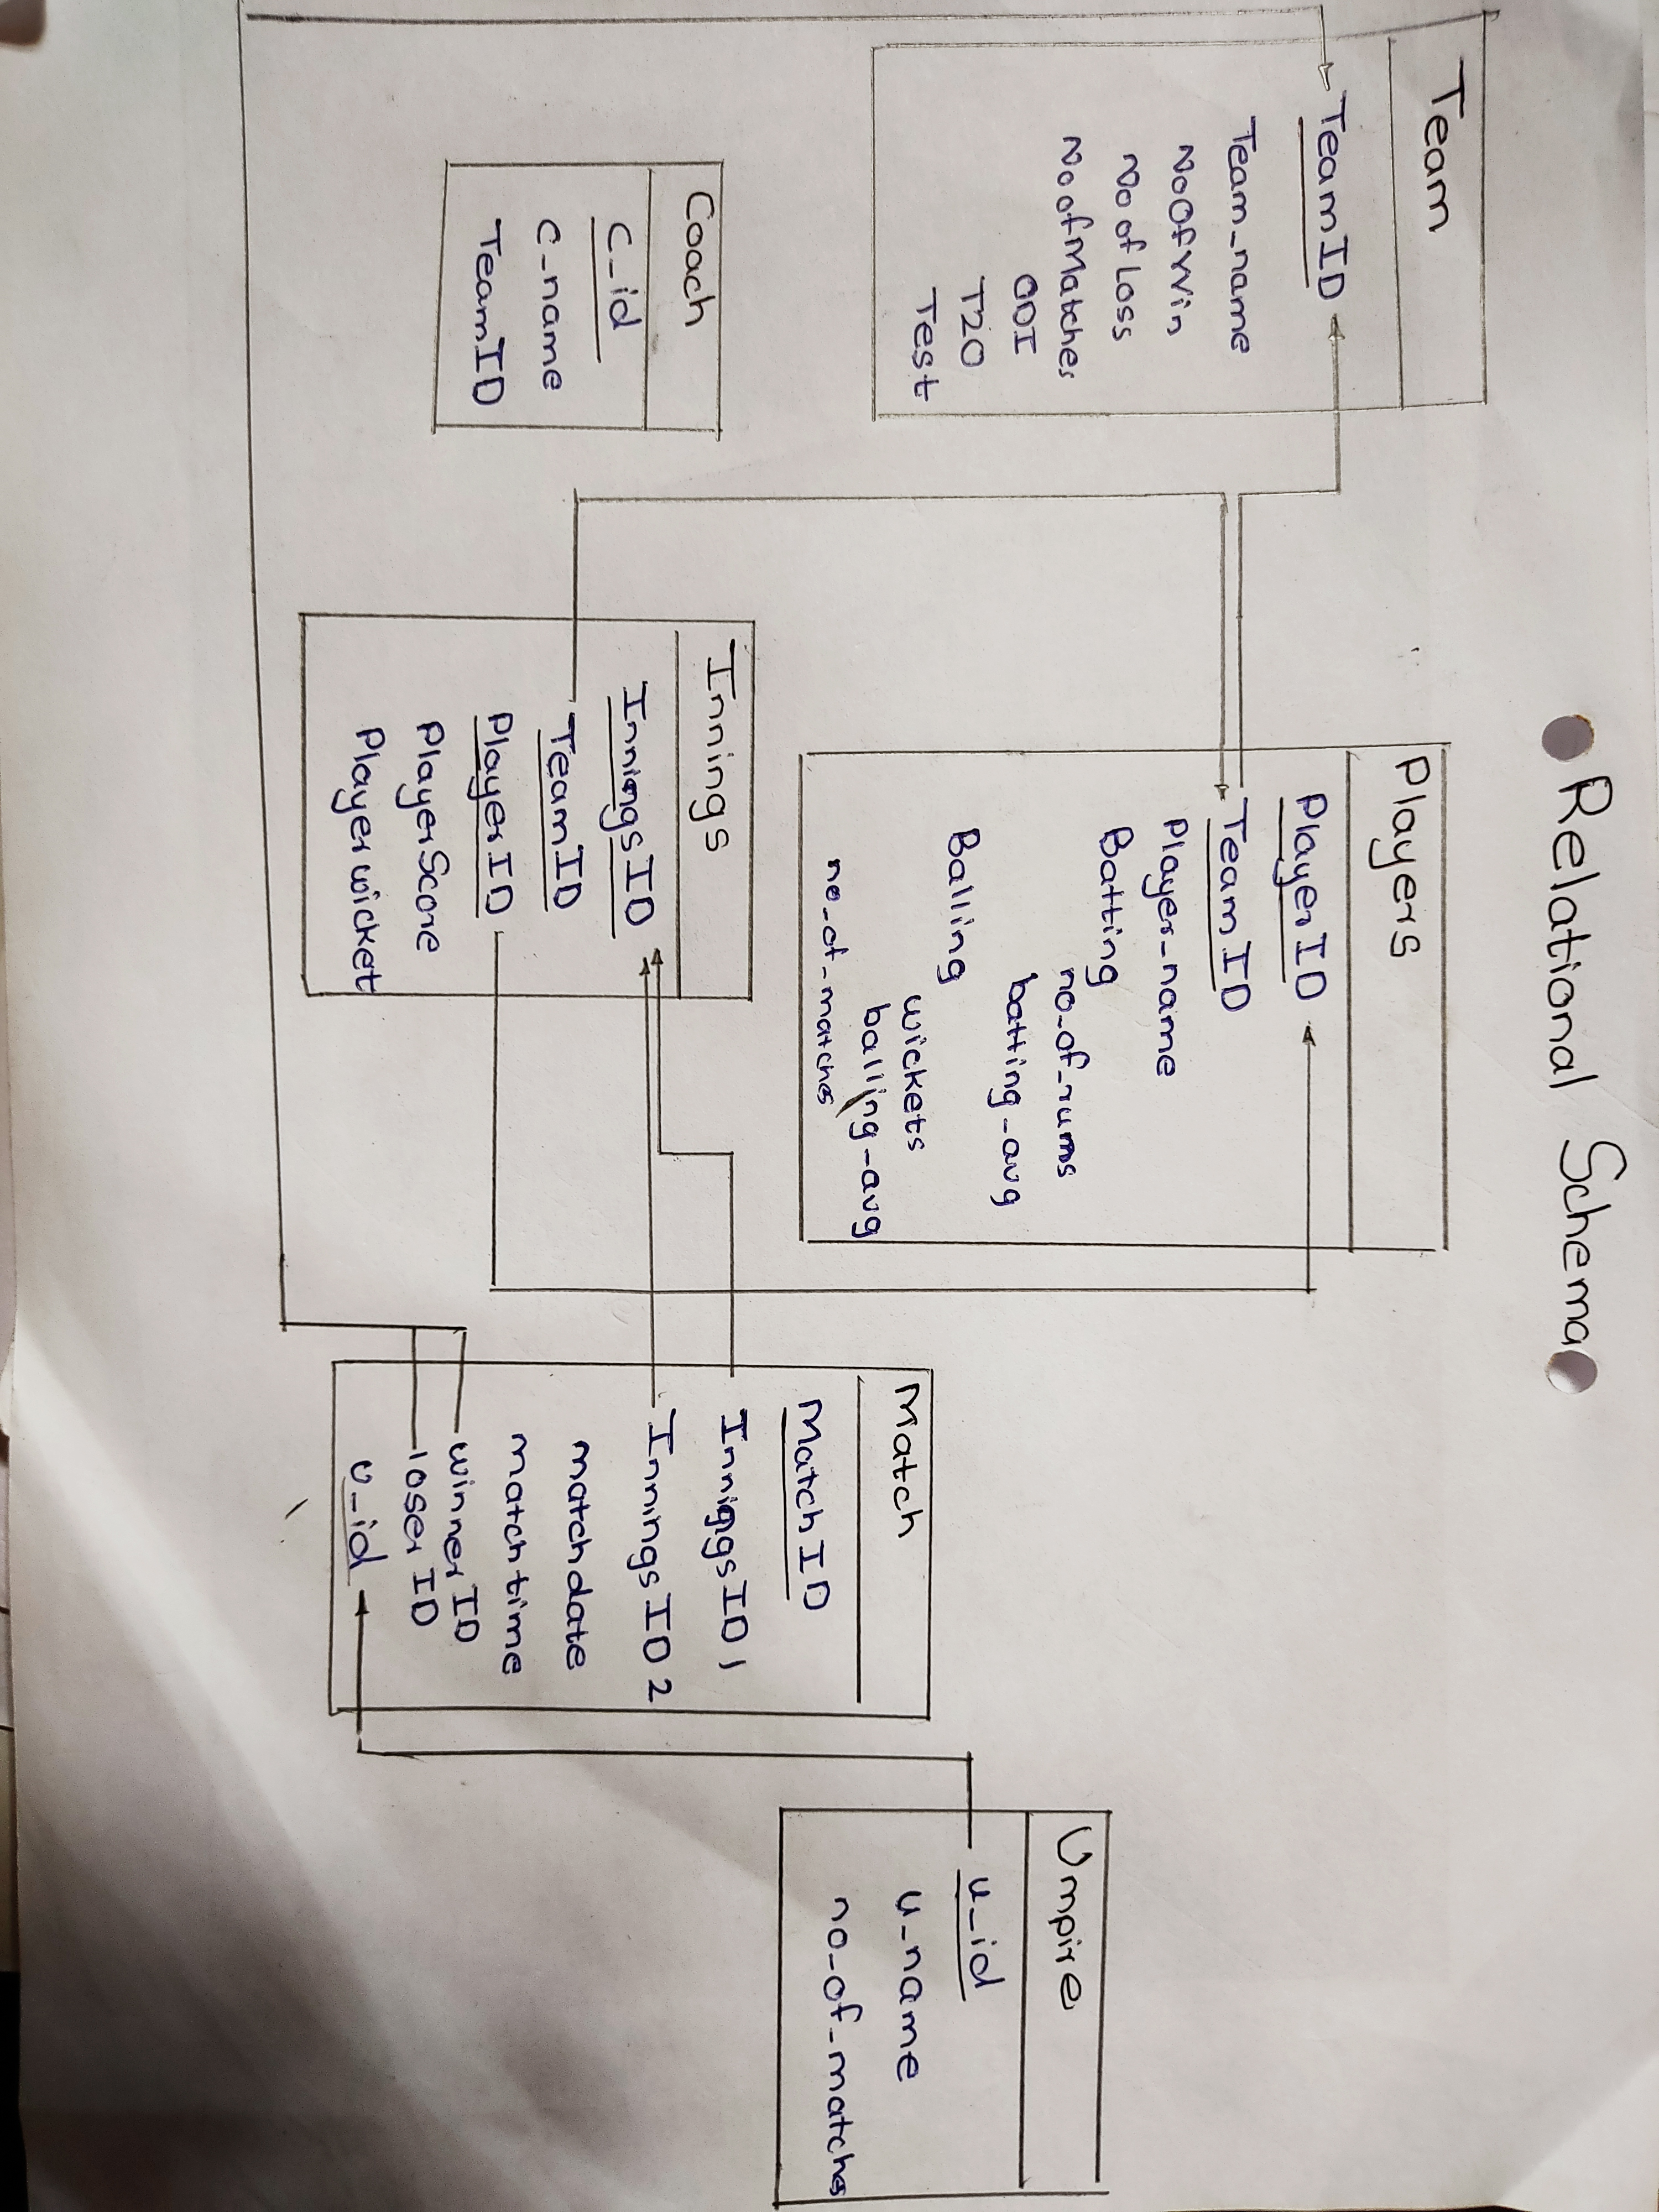 Relational Schema
Team
TeamID
Team_name
NoOfWin
No of Loss
No of Matches
ODI
T20
Test
Players
PlayerID
TeamID
Player_name
Batting
no_of_runs
batting_avg
Balling
wickets
balling_avg
no_of_matches
Coach
C_id
C_name
TeamID
Innings
InningsID
TeamID
PlayerID
PlayerScore
Playerwicket
Match
MatchID
InniggsID1
InningsID2
matchdate
matchtime
winnerID
loserID
U_id
Umpire
u_id
u_name
no_of_matches